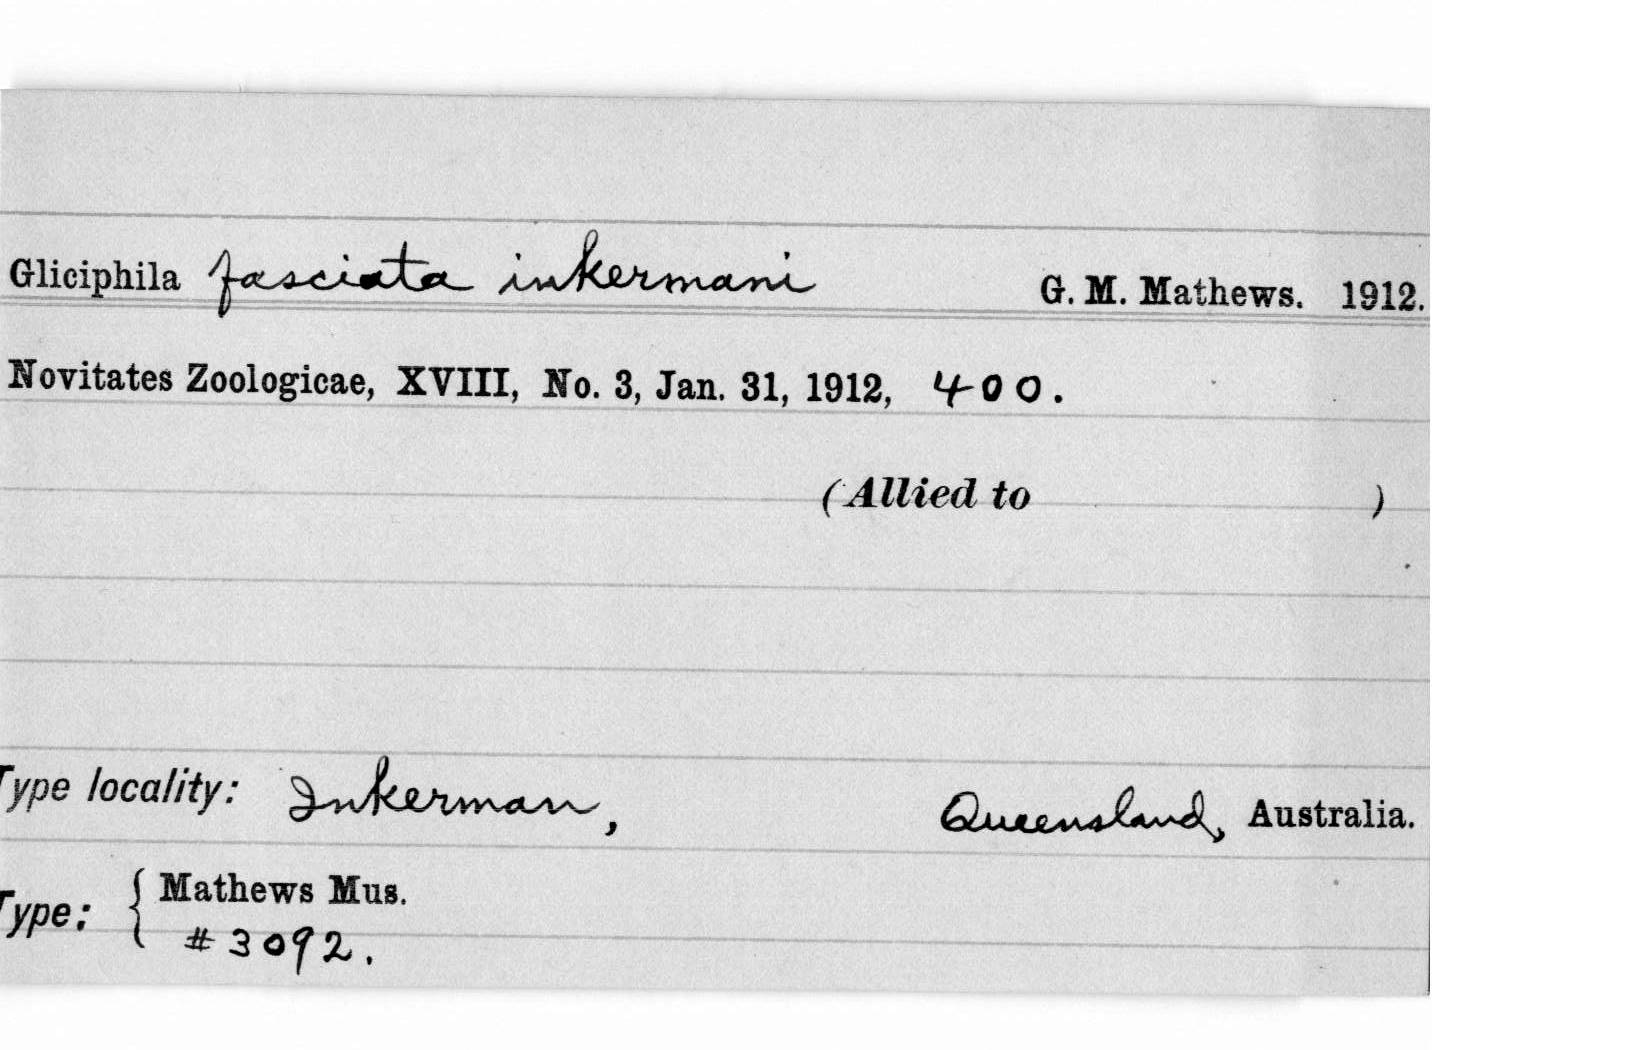 Gliciphila fasciata inkermani G. M. Mathews. 1912.
Novitates Zoologicae, XVIII, No. 3, Jan. 31, 1912, 400.
(Allied to )
Type locality: Inkerman, Queensland, Australia.
Type: { Mathews Mus.
#3092.